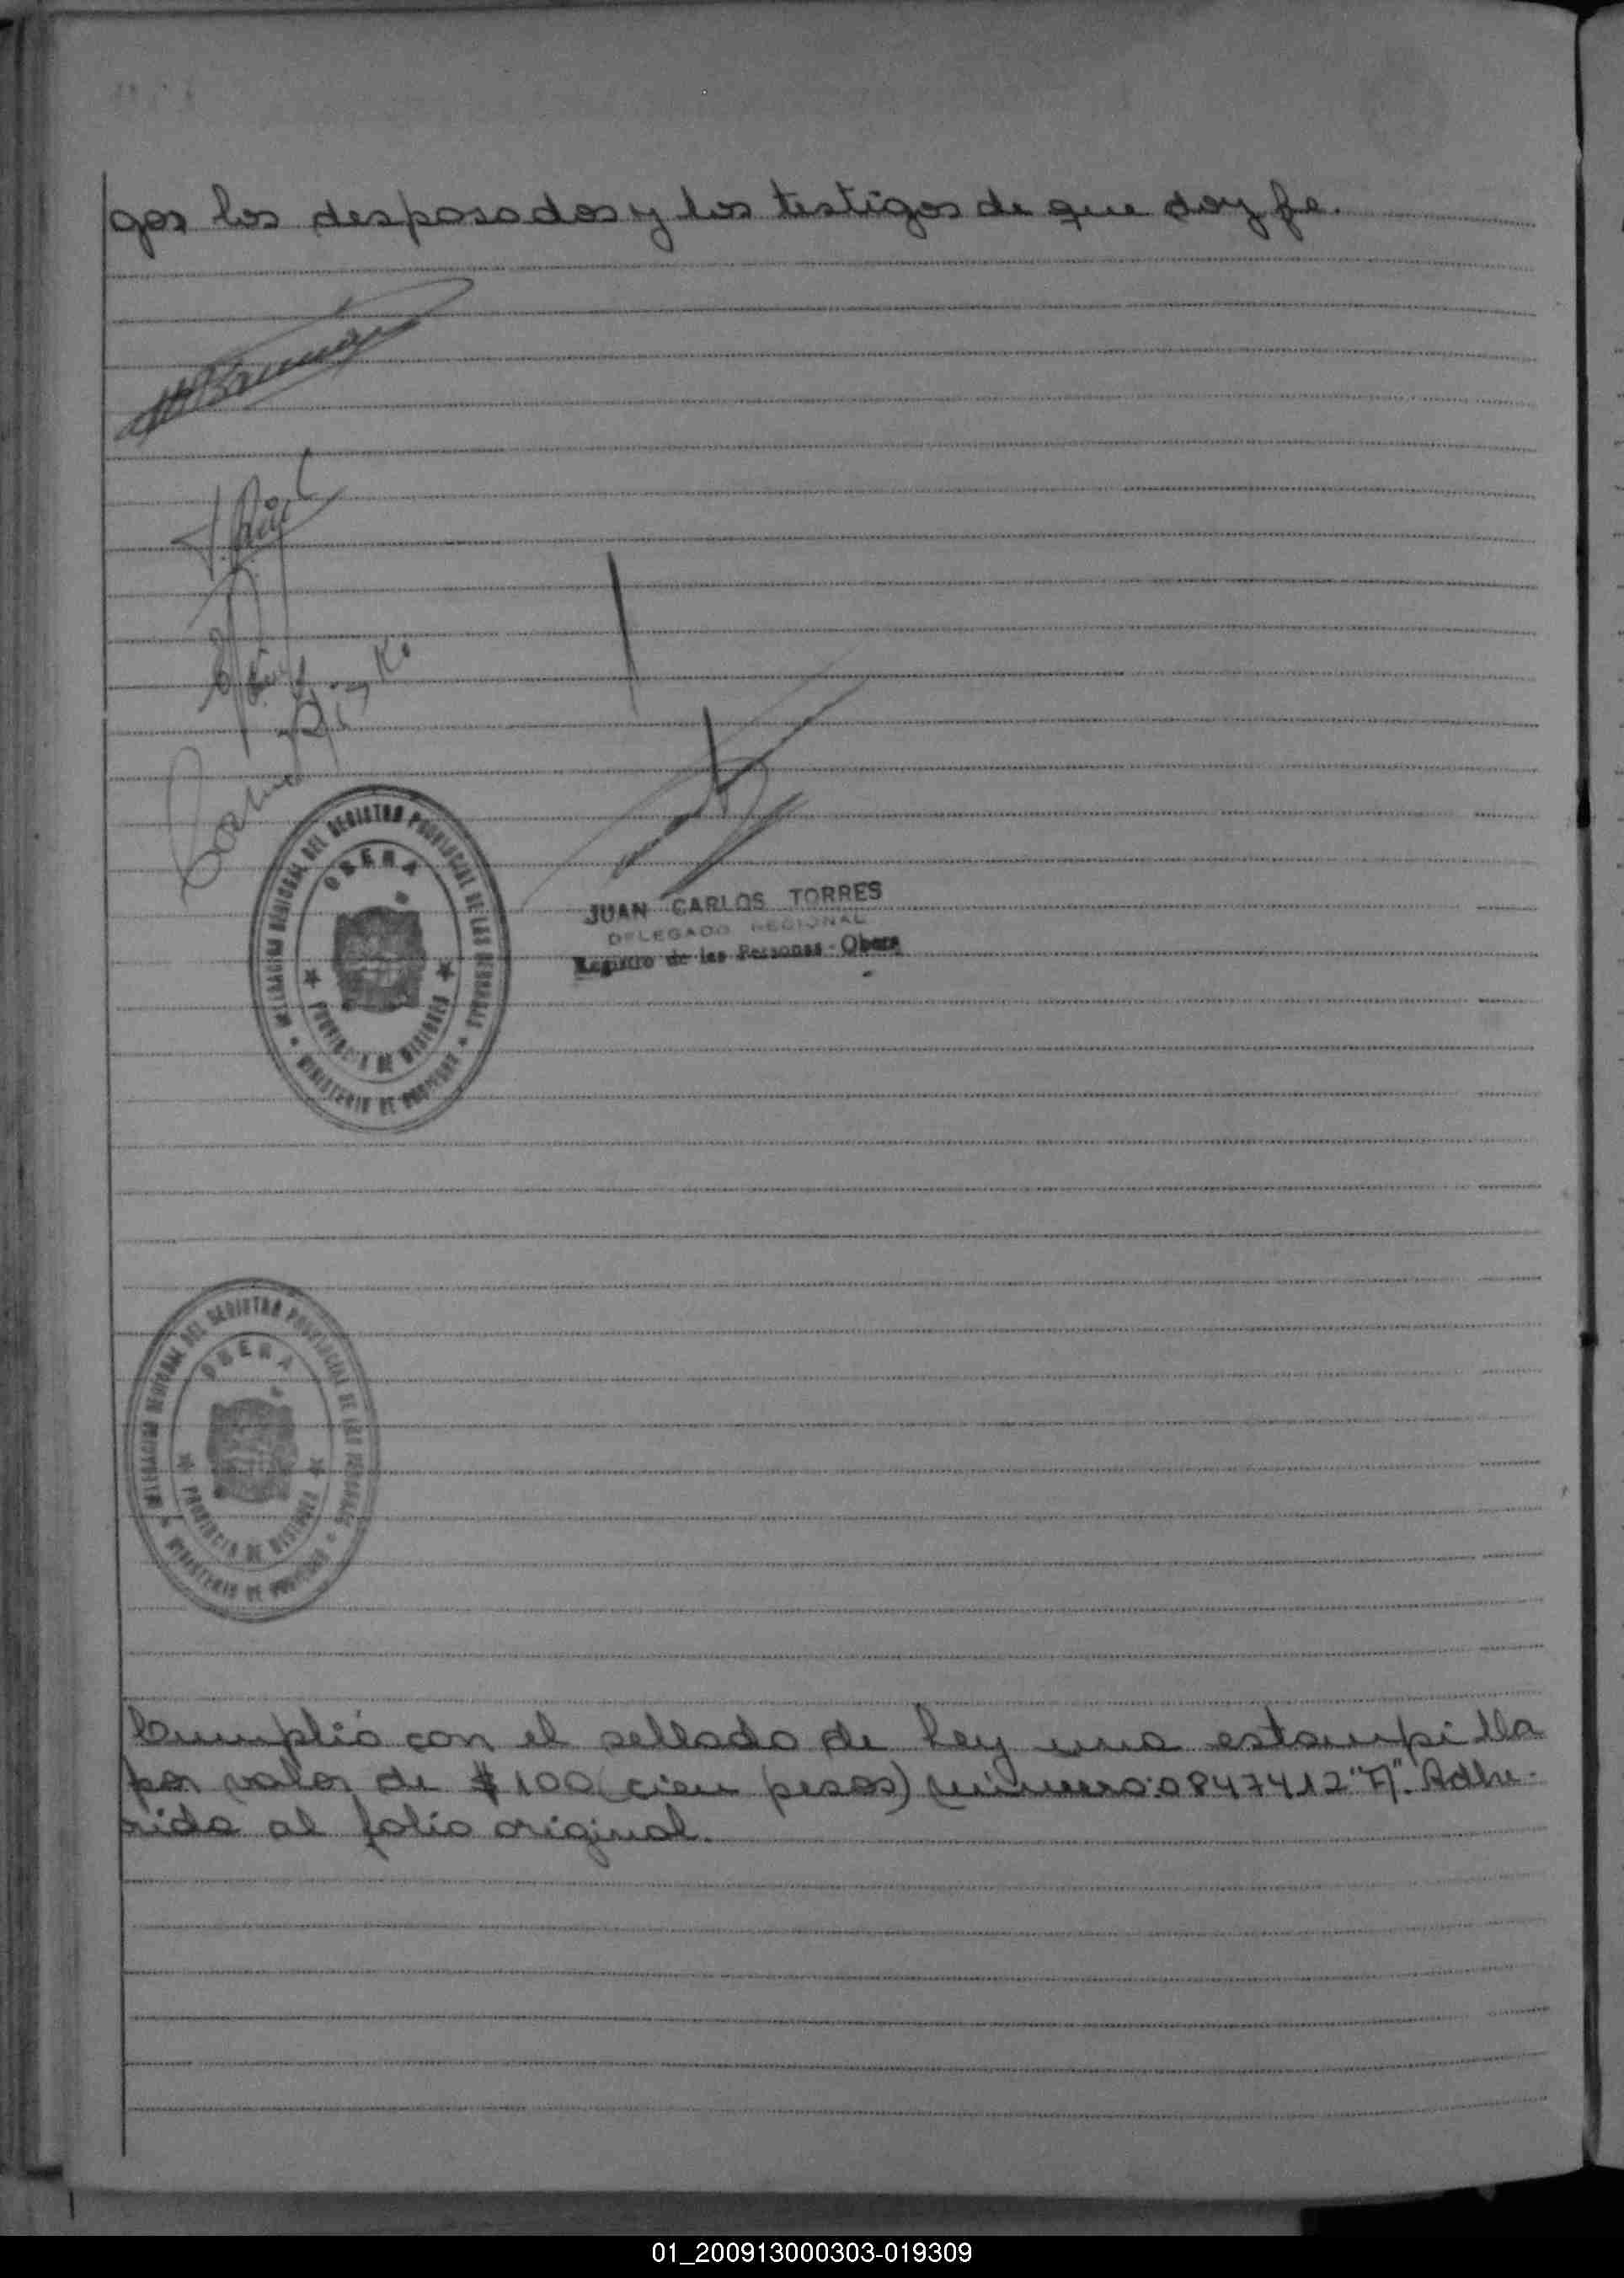 gos los desposados y los testigos de que doy fe.
DELEGACION REGIONAL DEL REGISTRO PROVINCIAL DE LAS PERSONAS
OBERA
PROVINCIA DE MISIONES
MINISTERIO DE GOBIERNO
JUAN CARLOS TORRES
DELEGADO REGIONAL
Registro de las Personas - Obera
DELEGACION REGIONAL DEL REGISTRO PROVINCIAL DE LAS PERSONAS
OBERA
PROVINCIA DE MISIONES
MINISTERIO DE GOBIERNO
Cumplió con el sellado de Ley una estampilla
por valor de $100 (cien pesos) número: 0847412 "A". Adhe-
rida al folio original.
01_200913000303-019309